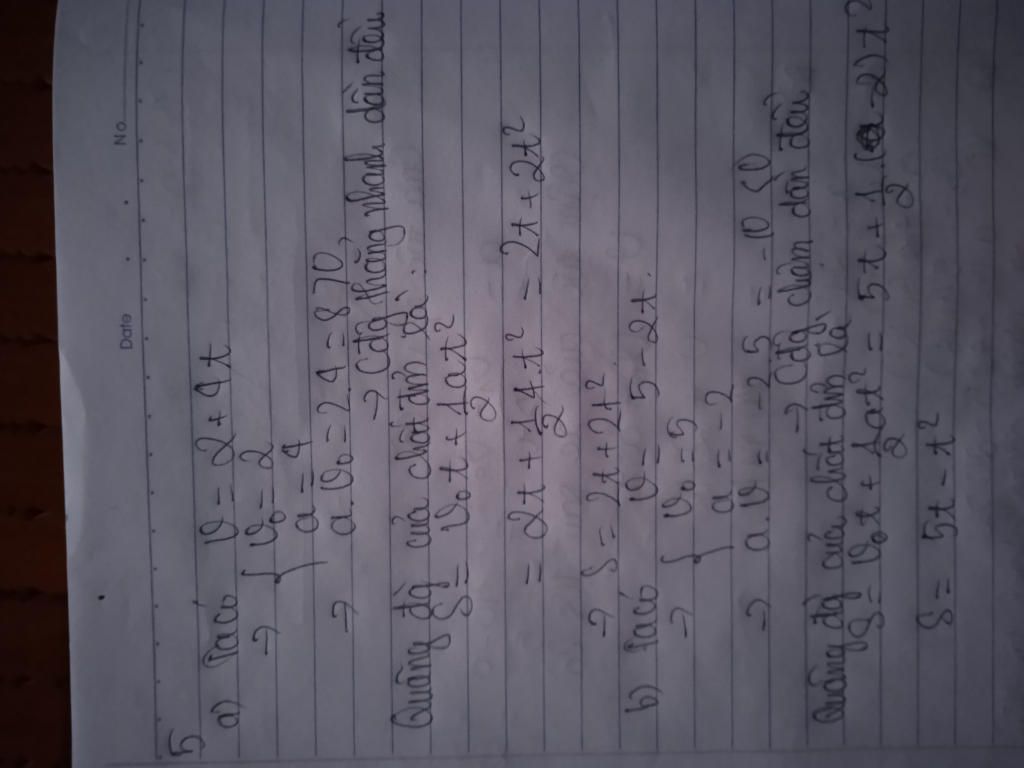 Date
No
5
a) Ta có v = 2 + 4t
→ { v₀ = 2
a = 4
→ a.v₀ = 2.4 = 8 > 0
→ Cđg thẳng nhanh dần đều
Quãng đg của chất đm là:
s = v₀t + 1/2 at²
= 2t + 1/2 4t² = 2t + 2t²
→ s = 2t + 2t²
b) Ta có v = 5 - 2t.
→ { v₀ = 5
a = -2
→ a.v = -2.5 = -10 < 0
→ Cđg chậm dần đều
Quãng đg của chất đm là
s = v₀t + 1/2 at² = 5t + 1/2 (-2)t²
s = 5t - t²